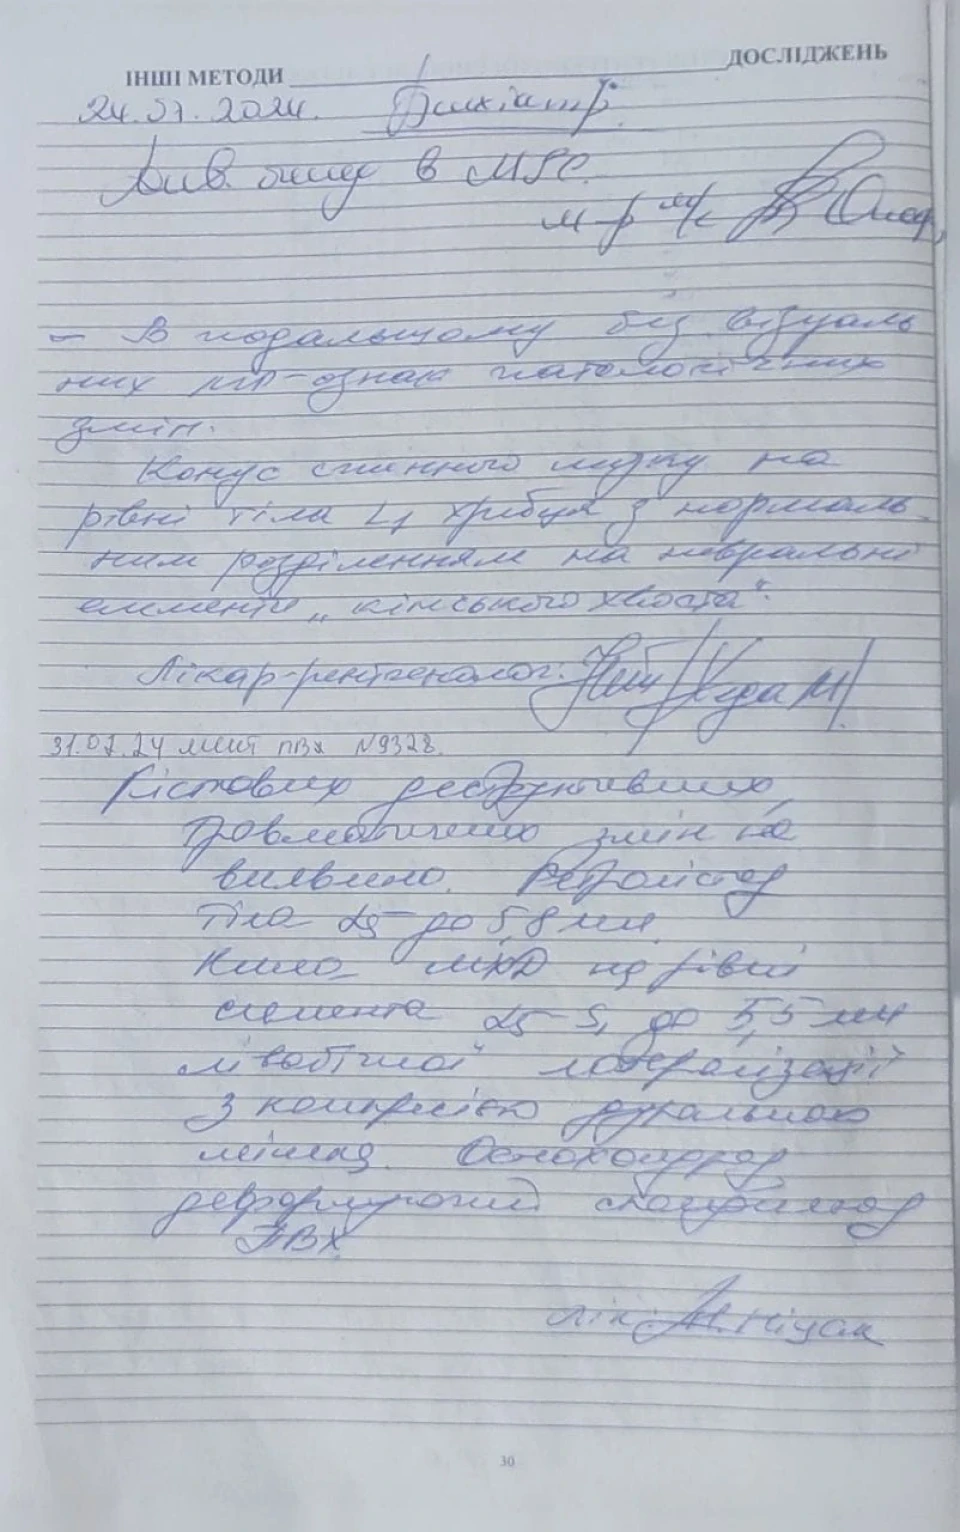 ІНШІ МЕТОДИ ДОСЛІДЖЕНЬ
24.07.2024. Психіатр.
Див. в МРС.
– В подальшому без візуаль
них мр-ознак патологічних
змін.
Конус спинного мозку на
рівні тіла L1 хребця з нормаль-
ним розділенням на невральні
елементи „кінського хвоста".
Лікар-рентгенолог:
31.07.24 мскт пвх №9328.
Кістових деструктивних,
травматичних змін не
виявлено. Ретролістез
тіла L5 до 5,8 мм
Кила МХД на рівні
сегмента L5-S1 до 5,5 мм
лівобічної латералізації
з компресією дурального
мішка. Остеохондроз
деформуючий спондильоз
ПВХ
лік.
30